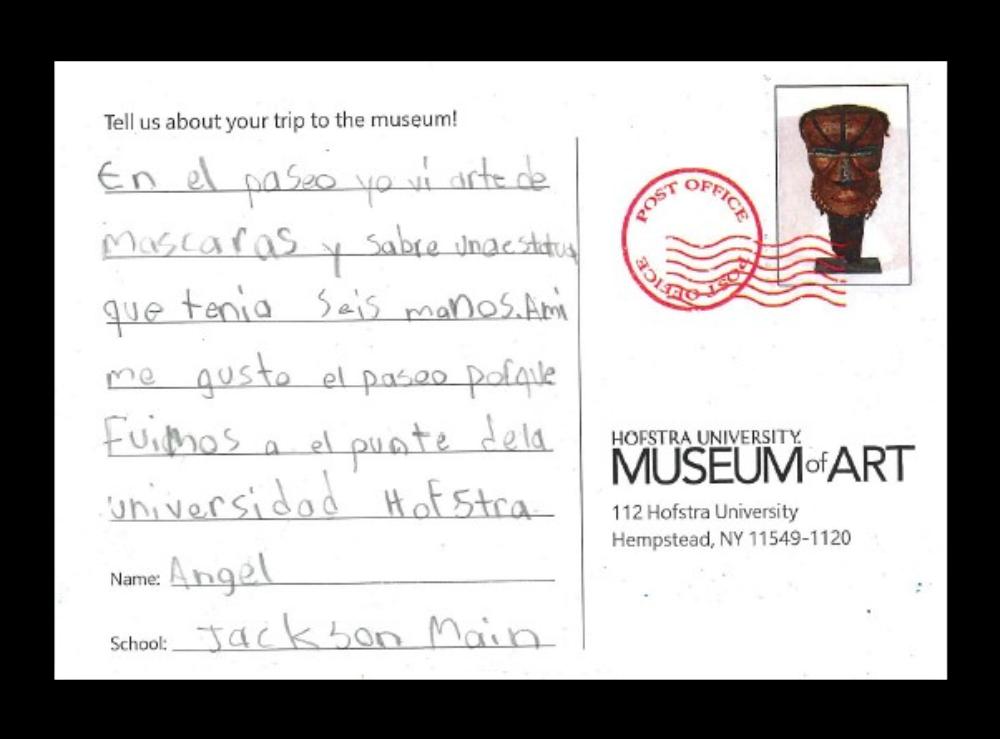 Tell us about your trip to the museum!
En el paseo yo vi arte de
mascaras y sabre unaestatua
que tenia Seis manos. Ami
me gusto el paseo porque
Fuimos a el punte dela
universidad HofStra
Name: Angel
School: Jackson Main
POST OFFICE
POST OFFICE
HOFSTRA UNIVERSITY
MUSEUM of ART
112 Hofstra University
Hempstead, NY 11549-1120